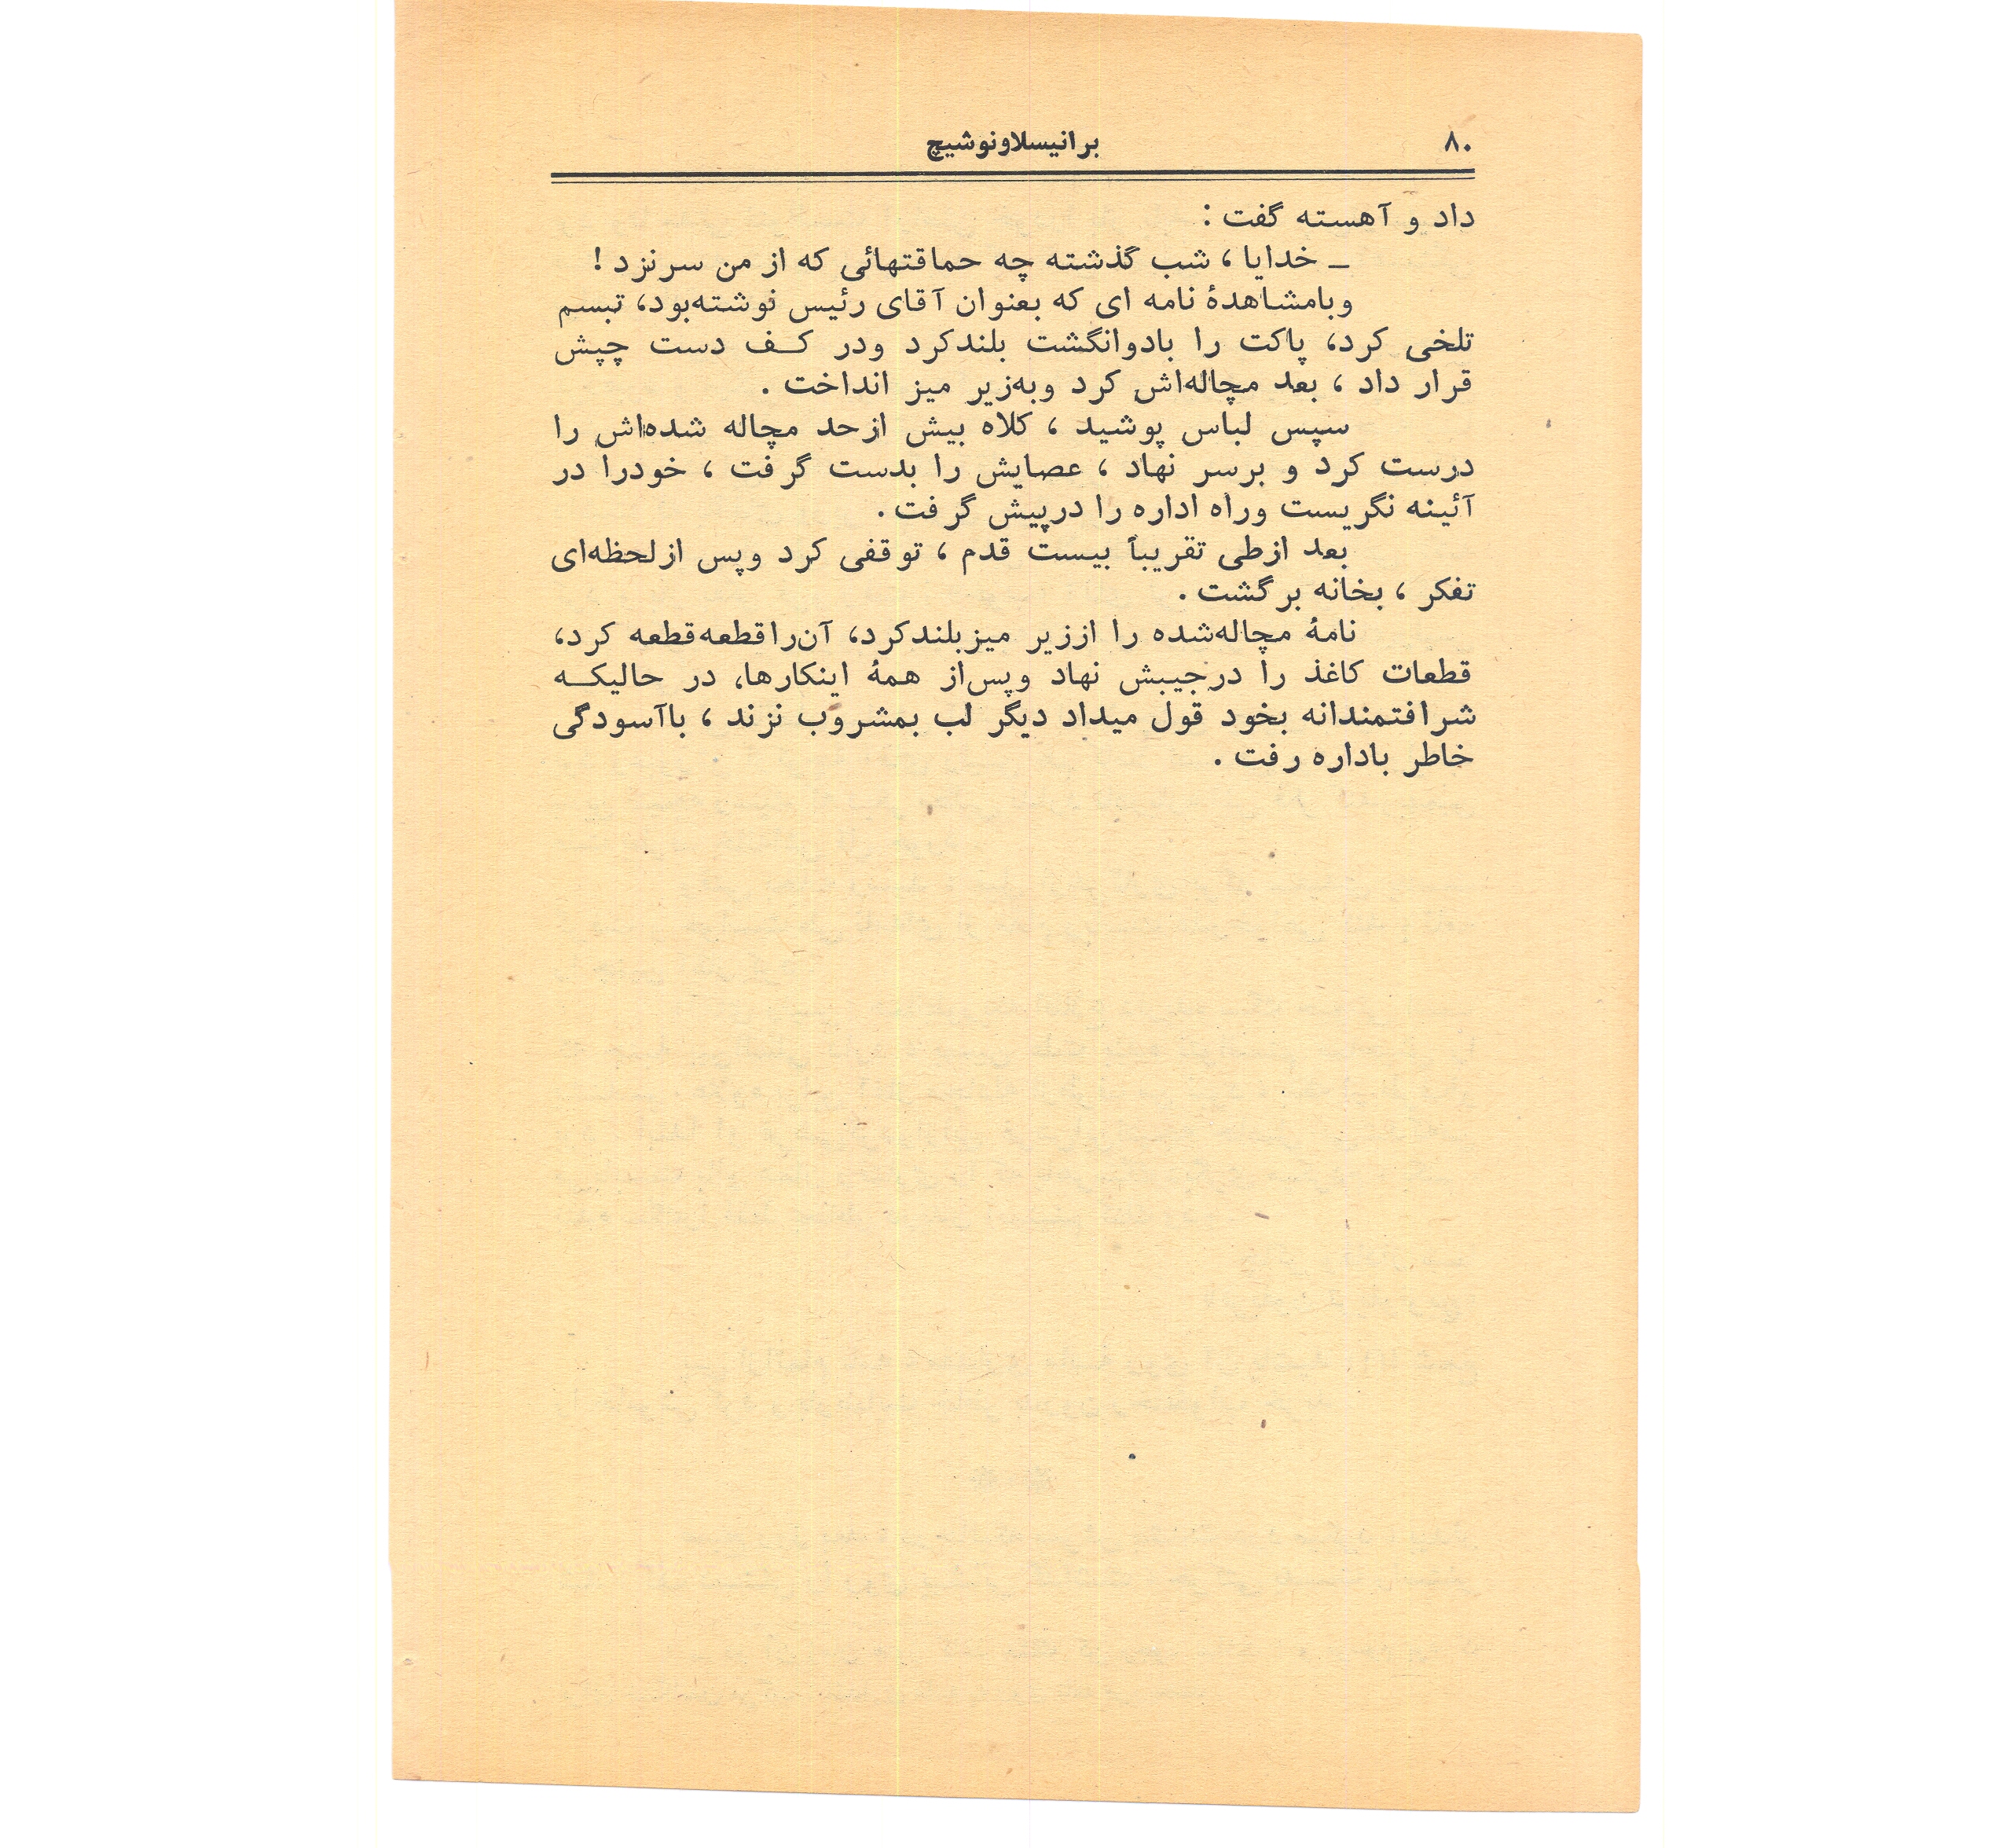 ۸۰
برانیسلاونوشیچ
داد و آهسته گفت :
ـ خدایا ، شب گذشته چه حماقتهائی که از من سرنزد !
وبامشاهدهٔ نامه ای که بعنوان آقای رئیس نوشته‌بود، تبسم
تلخی کرد، پاکت را بادوانگشت بلندکرد ودر کـف دست چپش
قرار داد ، بعد مچاله‌اش کرد وبه‌زیر میز انداخت .
سپس لباس پوشید ، کلاه بیش ازحد مچاله شده‌اش را
درست کرد و برسر نهاد ، عصایش را بدست گرفت ، خودرا در
آئینه نگریست وراه اداره را درپیش گرفت .
بعد ازطی تقریباً بیست قدم ، توقفی کرد وپس ازلحظه‌ای
تفکر ، بخانه برگشت .
نامهٔ مچاله‌شده را اززیر میزبلندکرد، آن‌راقطعه‌قطعه کرد،
قطعات کاغذ را درجیبش نهاد وپس‌از همهٔ اینکارها، در حالیکـه
شرافتمندانه بخود قول میداد دیگر لب بمشروب نزند ، باآسودگی
خاطر باداره رفت .